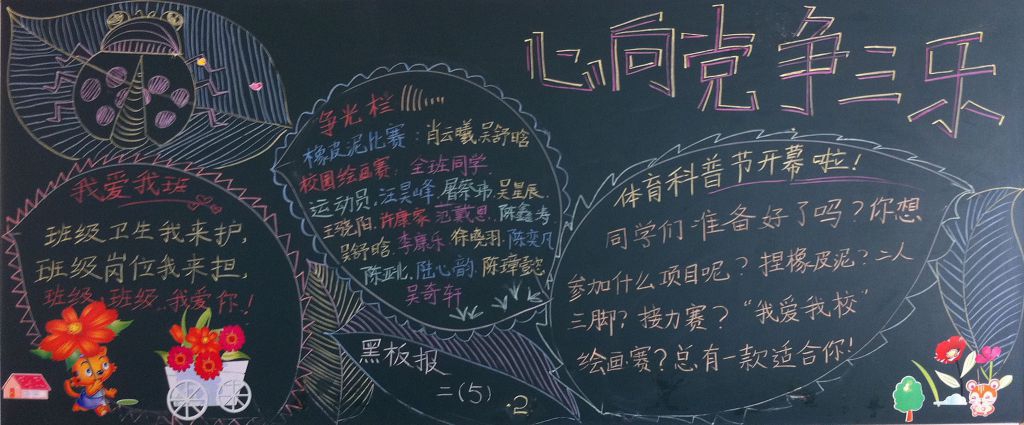 心向党争三乐
我爱我班
班级卫生我来护,
班级岗位我来担,
班级、班级、我爱你!
争光栏
橡皮泥比赛:肖云曦 吴舒晗
校园绘画赛:全班同学
运动员:汪昊峰 屠蔡弗 吴昱展
王晓阳 许康家 范戴思 陈鑫考
吴舒晗 李康乐 徐晓羽 陈奕凡
陈亚北 陆心韵 陈璋懿
吴奇轩
黑板报
二(5)
2
体育科普节开幕啦!
同学们准备好了吗?你想
参加什么项目呢?捏橡皮泥?二人
三脚?接力赛?“我爱我校”
绘画赛?总有一款适合你!